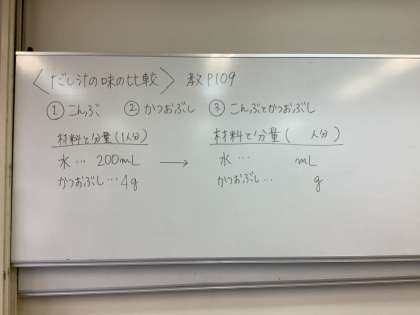 〈だし汁の味の比較〉 教P109
①こんぶ ②かつおぶし ③こんぶとかつおぶし
材料と分量(1人分) 材料と分量( 人分)
水… 200mL → 水… mL
かつおぶし…4g かつおぶし… g